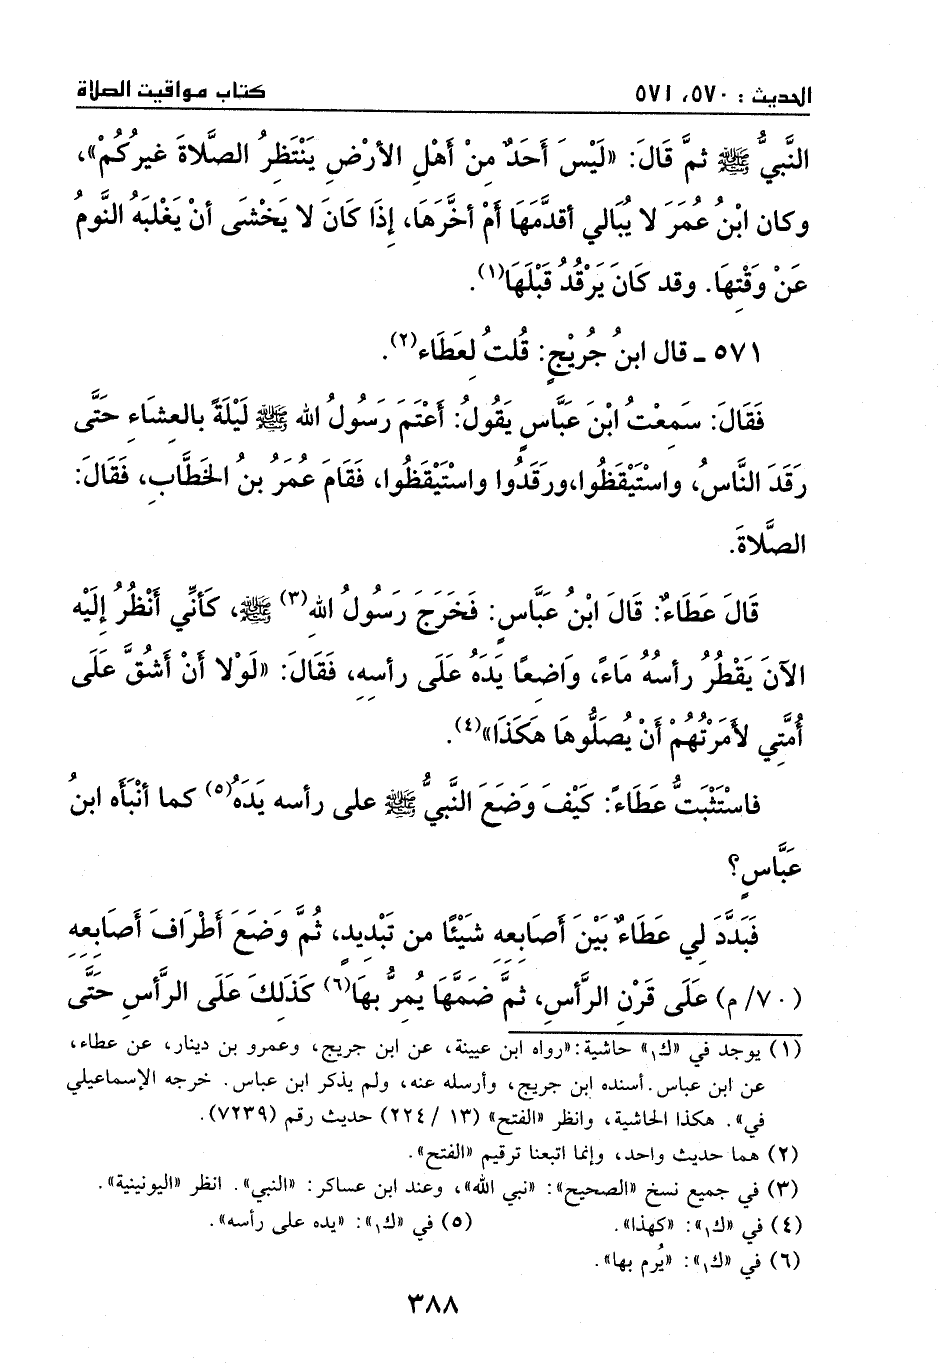 الحديث : ٥٧٠، ٥٧١ كتاب مواقيت الصلاة
النَّبيُّ ﷺ ثمَّ قَالَ: «لَيْسَ أَحَدٌ مِنْ أَهْلِ الأرْضِ يَنْتَظِرُ الصَّلاةَ غيرُكُمْ»،
وكان ابْنُ عُمَرَ لا يُبَالي أقدَّمَهَا أمْ أخَّرَهَا، إذَا كَانَ لا يَخْشَى أنْ يَغْلبَهُ النَّومُ
عَنْ وَقْتِهَا. وقد كَانَ يَرْقُدُ قَبْلَهَا(١).
٥٧١ ـ قال ابنُ جُرَيْجٍ: قُلتُ لِعَطَاء(٢).
فَقَالَ: سَمِعْتُ ابْنَ عَبَّاسٍ يَقُولُ: أَعْتَمَ رَسُولُ الله ﷺ لَيْلَةً بالعِشَاءِ حَتَّى
رَقَدَ النَّاسُ، واسْتَيْقَظُوا،ورَقَدُوا واسْتَيْقَظُوا، فَقَامَ عُمَرُ بنُ الخَطَّابِ، فَقَالَ:
الصَّلاةَ.
قَالَ عَطَاءٌ: قَالَ ابْنُ عَبَّاسٍ: فَخَرَجَ رَسُولُ اللهِ(٣) ﷺ، كَأنِّي أَنْظُرُ إلَيْه
الآنَ يَقْطُرُ رأسُهُ مَاءً، وَاضِعًا يَدَهُ عَلَى رأسِهِ، فَقَالَ: «لَوْلا أَنْ أَشُقَّ عَلَى
أُمَّتِي لأَمَرْتُهُمْ أَنْ يُصَلُّوهَا هَكَذَا»(٤).
فاسْتَثْبَتُّ عَطَاءً: كَيْفَ وَضَعَ النَّبيُّ ﷺ على رأسه يَدَهُ(٥) كما أنْبَأَه ابنُ
عَبَّاسٍ؟
فَبَدَّدَ لِي عَطَاءٌ بَيْنَ أَصَابِعِهِ شَيْئًا من تَبْدِيدٍ، ثُمَّ وَضَعَ أَطْرَافَ أَصَابِعِهِ
(٧٠/ م) عَلَى قَرْنِ الرَّأسِ، ثمَّ ضَمَّهَا يُمِرُّ بهَا(٦) كَذَلِكَ عَلَى الرَّأسِ حَتَّى
(١) يوجد في «ك١» حاشية:«رواه ابن عيينة، عن ابن جريج، وعمرو بن دينار، عن عطاء،
عن ابن عباس. أسنده ابن جريج، وأرسله عنه، ولم يذكر ابن عباس. خرجه الإسماعيلي
في». هكذا الحاشية، وانظر «الفتح» (١٣ / ٢٢٤) حديث رقم (٧٢٣٩).
(٢) هما حديث واحد، وإنما اتبعنا ترقيم «الفتح».
(٣) في جميع نسخ «الصحيح»: «نبي الله»، وعند ابن عساكر: «النبي». انظر «اليونينية».
(٤) في «ك١»: «كهذا». (٥) في «ك١»: «يده على رأسه».
(٦) في «ك١»: «يُرم بها».
٣٨٨